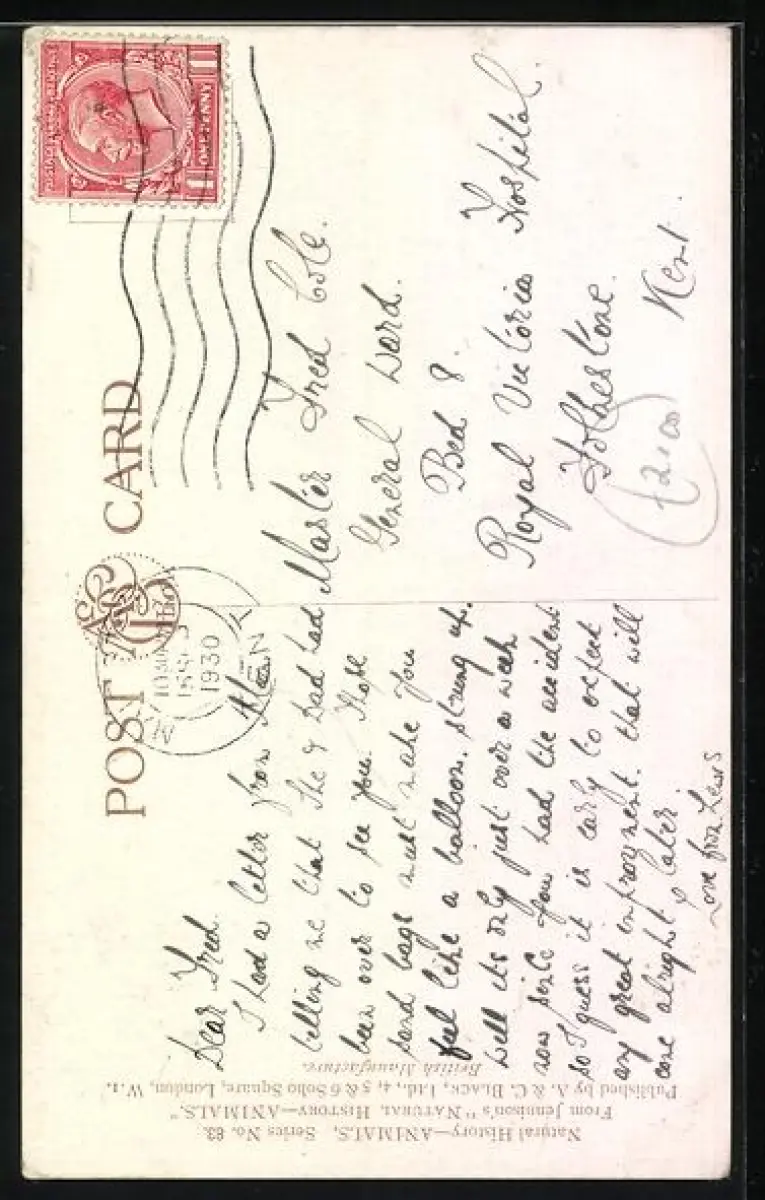 POST CARD
POSTAGE
REVENUE
ONE PENNY
10 30
1930
Dear Fred.
I had a letter from
telling me that she & Dad had
been over to see you. Hope
sand bags must make you
feel like a balloon. strung up.
well it's only just over a week
now since you had the accident
so I guess it is early to expect
any great improvment. that will
come alright later.
Love from Lewis
Master Fred Cole.
General Ward.
Bed 8.
Royal Victoria Hospital.
Folkestone.
Kent.
£2.00
Natural History—ANIMALS, Series No. 63.
From Jennison's "NATURAL HISTORY—ANIMALS."
Published by A. & C. BLACK, Ltd., 4, 5 & 6 Soho Square, London, W 1.
British Manufacture.